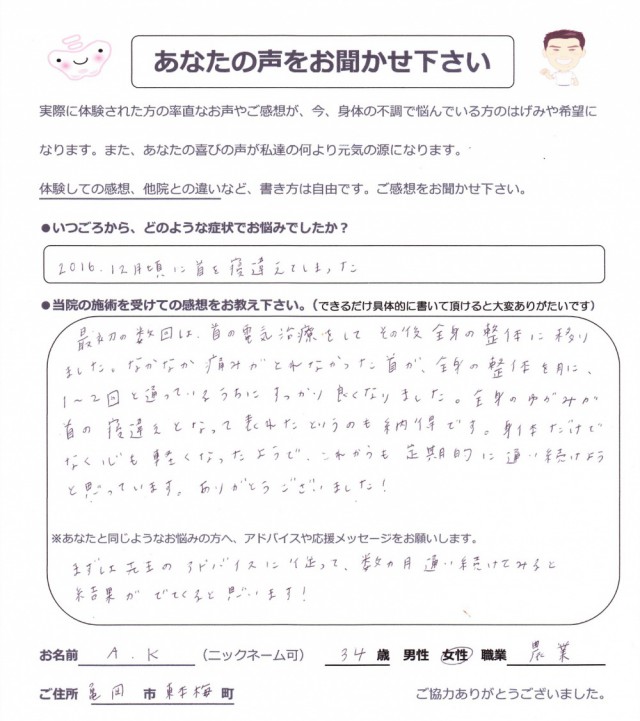 あなたの声をお聞かせ下さい
実際に体験された方の率直なお声やご感想が、今、身体の不調で悩んでいる方のはげみや希望に
なります。また、あなたの喜びの声が私達の何より元気の源になります。
体験しての感想、他院との違いなど、書き方は自由です。ご感想をお聞かせ下さい。
●いつごろから、どのような症状でお悩みでしたか？
2016.12月頃に首を寝違えてしまった
●当院の施術を受けての感想をお教え下さい。（できるだけ具体的に書いて頂けると大変ありがたいです）
最初の数回は、首の電気治療をして その後 全身の整体に移り
ました。なかなか 痛みがとれなかった首が、全身の整体を月に、
1～2回と通っているうちに すっかり良くなりました。全身のゆがみが
首の 寝違えとなって 表れた というのも 納得です。身体だけで
なく心も 軽くなったようで、これからも 定期的に 通い続けよう
と思っています。ありがとうございました!
※あなたと同じようなお悩みの方へ、アドバイスや応援メッセージをお願いします。
まずは 先生の アドバイスに 従って、数カ月 通い続けてみると
結果が でてくると思います!
お名前 A.K （ニックネーム可） 34 歳 男性 女性 職業 農業
ご住所 亀岡 市 東本梅 町 ご協力ありがとうございました。